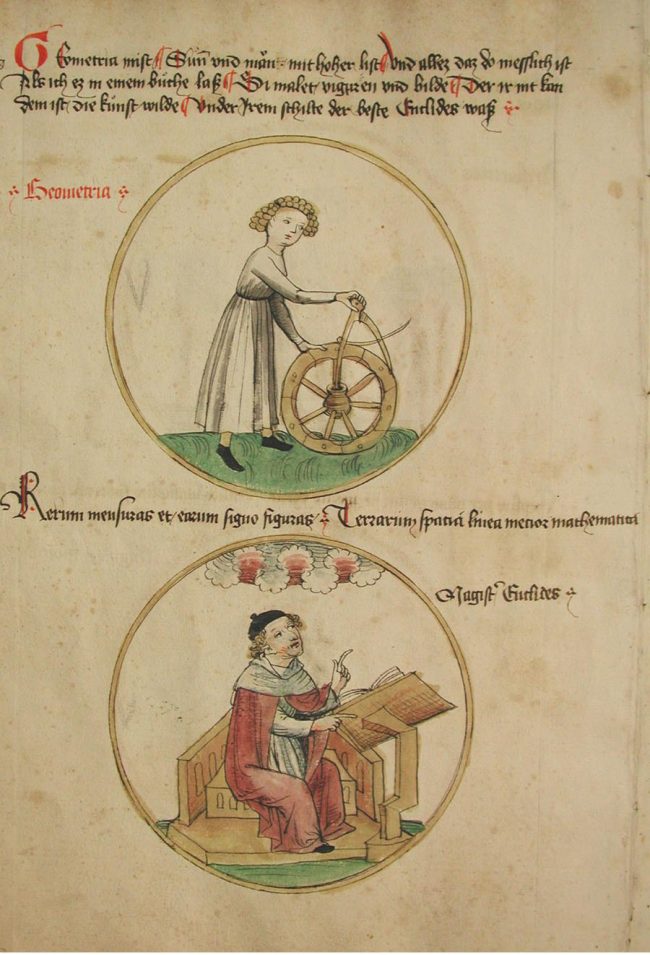 Geometria mist Sunn vnd man mit hoher list Vnd allez daz do messlich ist
Als ich ez in einem buche laß Si malet viguren vnd bilde Der ir nit kan
dem ist die kunst wilde Vnder Irem schilte der beste Euclides waß
Geometria
Rerum mensuras et earum signo figuras Terrarum spatia linea metior mathematica
Magistr Euclides